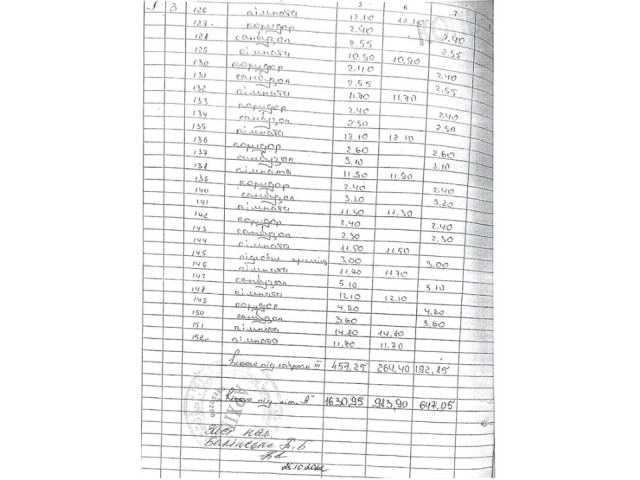 5 6 7
А 3 126 кімната 12.10 12.10
127 коридор 2.40 2.40
128 санвузол 2.55 2.55
129 кімната 10.90 10.90
130 коридор 2.40 2.40
131 санвузол 2.55 2.55
132 кімната 11.70 11.70
133 коридор 2.40 2.40
134 санвузол 2.50 2.50
135 кімната 12.10 12.10
136 коридор 2.60 2.60
137 санвузол 3.10 3.10
138 кімната 11.90 11.90
139 коридор 2.40 2.40
140 санвузол 3.20 3.20
141 кімната 11.30 11.30
142 коридор 2.40 2.40
143 санвузол 2.30 2.30
144 кімната 11.50 11.50
145 підсобн. приміщ 3.00 3.00
146 кімната 11.70 11.70
147 санвузол 5.10 5.10
148 кімната 12.10 12.10
149 коридор 4.20 4.20
150 санвузол 3.60 3.60
151 кімната 14.20
152 кімната 11.70 11.70
Всього під III 457.25 264.40 192.85
Всього під літ. "А" 1630,95 983,90 647.05